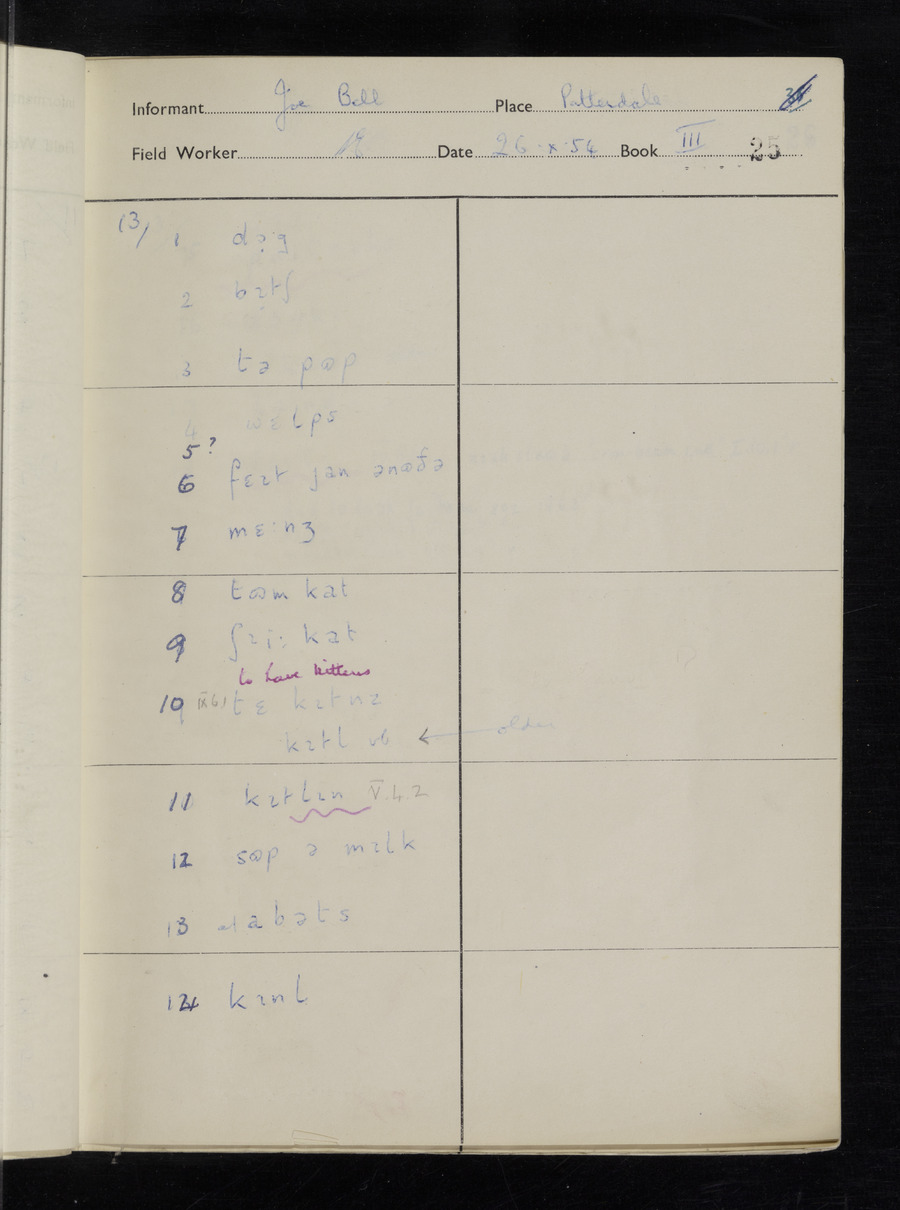 Informant Joe Bell Place Patterdale
Field Worker Date 26.x.54 Book III 25
13/ 1 dɒ̣·g
2 bɪtʃ
3 tə pɷp
4 wɛlps
5 ?
6 fɛɪt jan ənɷðə
7 mɛ·nʒ
8 tɷm kat
9 ʃɪi: kat
to have kittens
10 IX 6) tɛ kɪtnɪ
kɪtl vb ← older
11 kɪtlɪn V.4.2
12 sɷp ə mɪlk
13 abəts
14 kɪnl